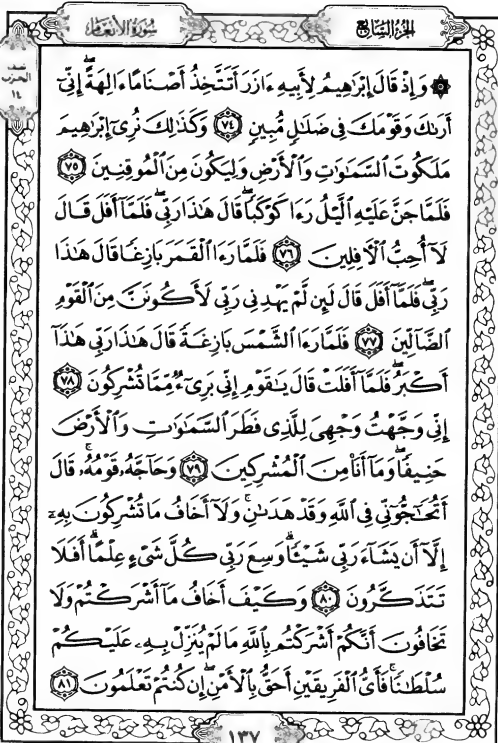 سُورَةُ الأَنعَام
الجُزءُ السَّابِع
نصف
الحزب
١٤
۞ وَإِذْ قَالَ إِبْرَٰهِيمُ لِأَبِيهِ ءَازَرَ أَتَتَّخِذُ أَصْنَامًا ءَالِهَةً ۖ إِنِّىٓ
أَرَىٰكَ وَقَوْمَكَ فِى ضَلَٰلٍ مُّبِينٍ ٧٤ وَكَذَٰلِكَ نُرِىٓ إِبْرَٰهِيمَ
مَلَكُوتَ ٱلسَّمَٰوَٰتِ وَٱلْأَرْضِ وَلِيَكُونَ مِنَ ٱلْمُوقِنِينَ ٧٥
فَلَمَّا جَنَّ عَلَيْهِ ٱلَّيْلُ رَءَا كَوْكَبًا ۖ قَالَ هَٰذَا رَبِّى ۖ فَلَمَّآ أَفَلَ قَالَ
لَآ أُحِبُّ ٱلْءَافِلِينَ ٧٦ فَلَمَّا رَءَا ٱلْقَمَرَ بَازِغًا قَالَ هَٰذَا
رَبِّى ۖ فَلَمَّآ أَفَلَ قَالَ لَئِن لَّمْ يَهْدِنِى رَبِّى لَأَكُونَنَّ مِنَ ٱلْقَوْمِ
ٱلضَّآلِّينَ ٧٧ فَلَمَّا رَءَا ٱلشَّمْسَ بَازِغَةً قَالَ هَٰذَا رَبِّى هَٰذَآ
أَكْبَرُ ۖ فَلَمَّآ أَفَلَتْ قَالَ يَٰقَوْمِ إِنِّى بَرِىٓءٌ مِّمَّا تُشْرِكُونَ ٧٨
إِنِّى وَجَّهْتُ وَجْهِىَ لِلَّذِى فَطَرَ ٱلسَّمَٰوَٰتِ وَٱلْأَرْضَ
حَنِيفًا ۖ وَمَآ أَنَا۠ مِنَ ٱلْمُشْرِكِينَ ٧٩ وَحَآجَّهُۥ قَوْمُهُۥ ۚ قَالَ
أَتُحَٰٓجُّوٓنِّى فِى ٱللَّهِ وَقَدْ هَدَىٰنِ ۚ وَلَآ أَخَافُ مَا تُشْرِكُونَ بِهِۦٓ
إِلَّآ أَن يَشَآءَ رَبِّى شَيْـًٔا ۗ وَسِعَ رَبِّى كُلَّ شَىْءٍ عِلْمًا ۗ أَفَلَا
تَتَذَكَّرُونَ ٨٠ وَكَيْفَ أَخَافُ مَآ أَشْرَكْتُمْ وَلَا
تَخَافُونَ أَنَّكُمْ أَشْرَكْتُم بِٱللَّهِ مَا لَمْ يُنَزِّلْ بِهِۦ عَلَيْكُمْ
سُلْطَٰنًا ۚ فَأَىُّ ٱلْفَرِيقَيْنِ أَحَقُّ بِٱلْأَمْنِ ۖ إِن كُنتُمْ تَعْلَمُونَ ٨١
١٣٧